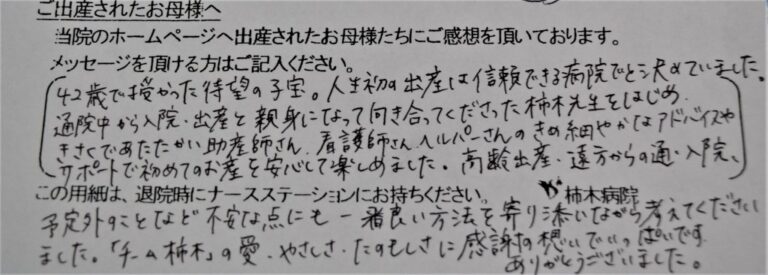 ご出産されたお母様へ
当院のホームページへ出産されたお母様たちにご感想を頂いております。
メッセージを頂ける方はご記入ください。
42歳で授かった待望の子宝。人生初の出産は信頼できる病院でと決めていました。
通院中から入院・出産と親身になって向き合ってくださった柿木先生をはじめ、
きさくであたたかい助産師さん、看護師さん、ヘルパーさんのきめ細やかなアドバイスや
サポートで初めてのお産を安心して楽しめました。高齢出産・遠方からの通・入院、
この用紙は、退院時にナースステーションにお持ちください。 柿木病院
予定外のことなど不安な点にも一番良い方法を寄り添いながら考えてください
ました。「チーム柿木」の愛・やさしさ・たのもしさに感謝の想いでいっぱいです。
ありがとうございました。